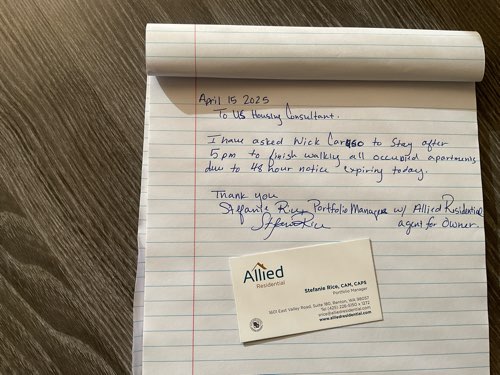 April 15 2025
To US Housing Consultant.
I have asked Nick Caruso to stay after
5 pm to finish walking all occupied apartments
due to 48 hour notice expiring today.
Thank you
Stefanie Rice Portfolio Manager w/ Allied Residential
Stefanie Rice agent for Owner.
Allied
Residential
Stefanie Rice, CAM, CAPS
Portfolio Manager
1601 East Valley Road, Suite 180, Renton, WA 98057
www.alliedresidential.com